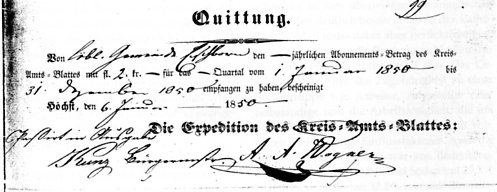 99
Quittung.
Von löbl. Gemeinde Eschborn den — jährlichen Abonnements-Betrag des Kreis-
Amts-Blattes mit fl. 2. kr. — für das — Quartal vom 1. Januar 1850 bis
31. Dezember 1850 empfangen zu haben, bescheinigt
Höchst, den 6 Januar 1850.
Die Expedition des Kreis-Amts-Blattes:
Kunz Bürgermstr A. A. Wagner